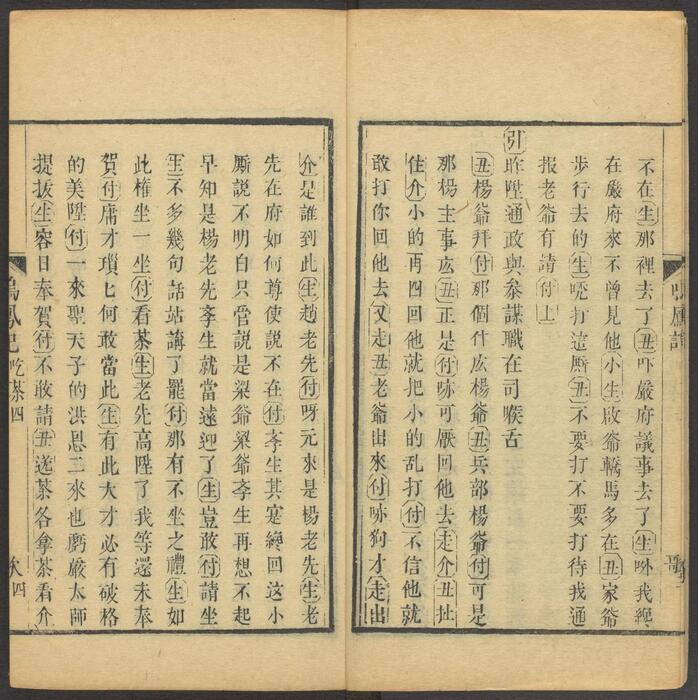 不在生那裡去了丑吓嚴府議事去了生咻我纔
在嚴府來不曾見他小生啟爺轎馬多在丑家爺
步行去的生唗打這厮丑不要打不要打待我通
報老爺有請付上
引昨陞通政與參謀職在司喉舌
丑楊爺拜付那個什庅楊爺丑兵部楊爺付可是
那楊主事庅丑正是付咻可厭回他去走介丑扯
住介小的再四回他就把小的乱打付不信他就
敢打你回他去又走丑老爺出來付咻狗才走出
鳴鳳記吃茶四
介是誰到此生趙老先付呀元來是楊老先生老
先在府如何尊使說不在付李生其寔纔回這小
厮說不明白只管說是梁爺梁爺李生再想不起
早知是楊老先李生就當遠迎了生豈敢付請坐
生不多幾句話站講了罷付那有不坐之禮生如
此権坐一坐付看茶生老先高陞了我等還未奉
賀付庸才瑣匕何敢當此生有此大才必有破格
的美陞付一來聖天子的洪恩二來也虧嚴太師
提拔生容日奉賀付不敢請丑送茶各拿茶看介